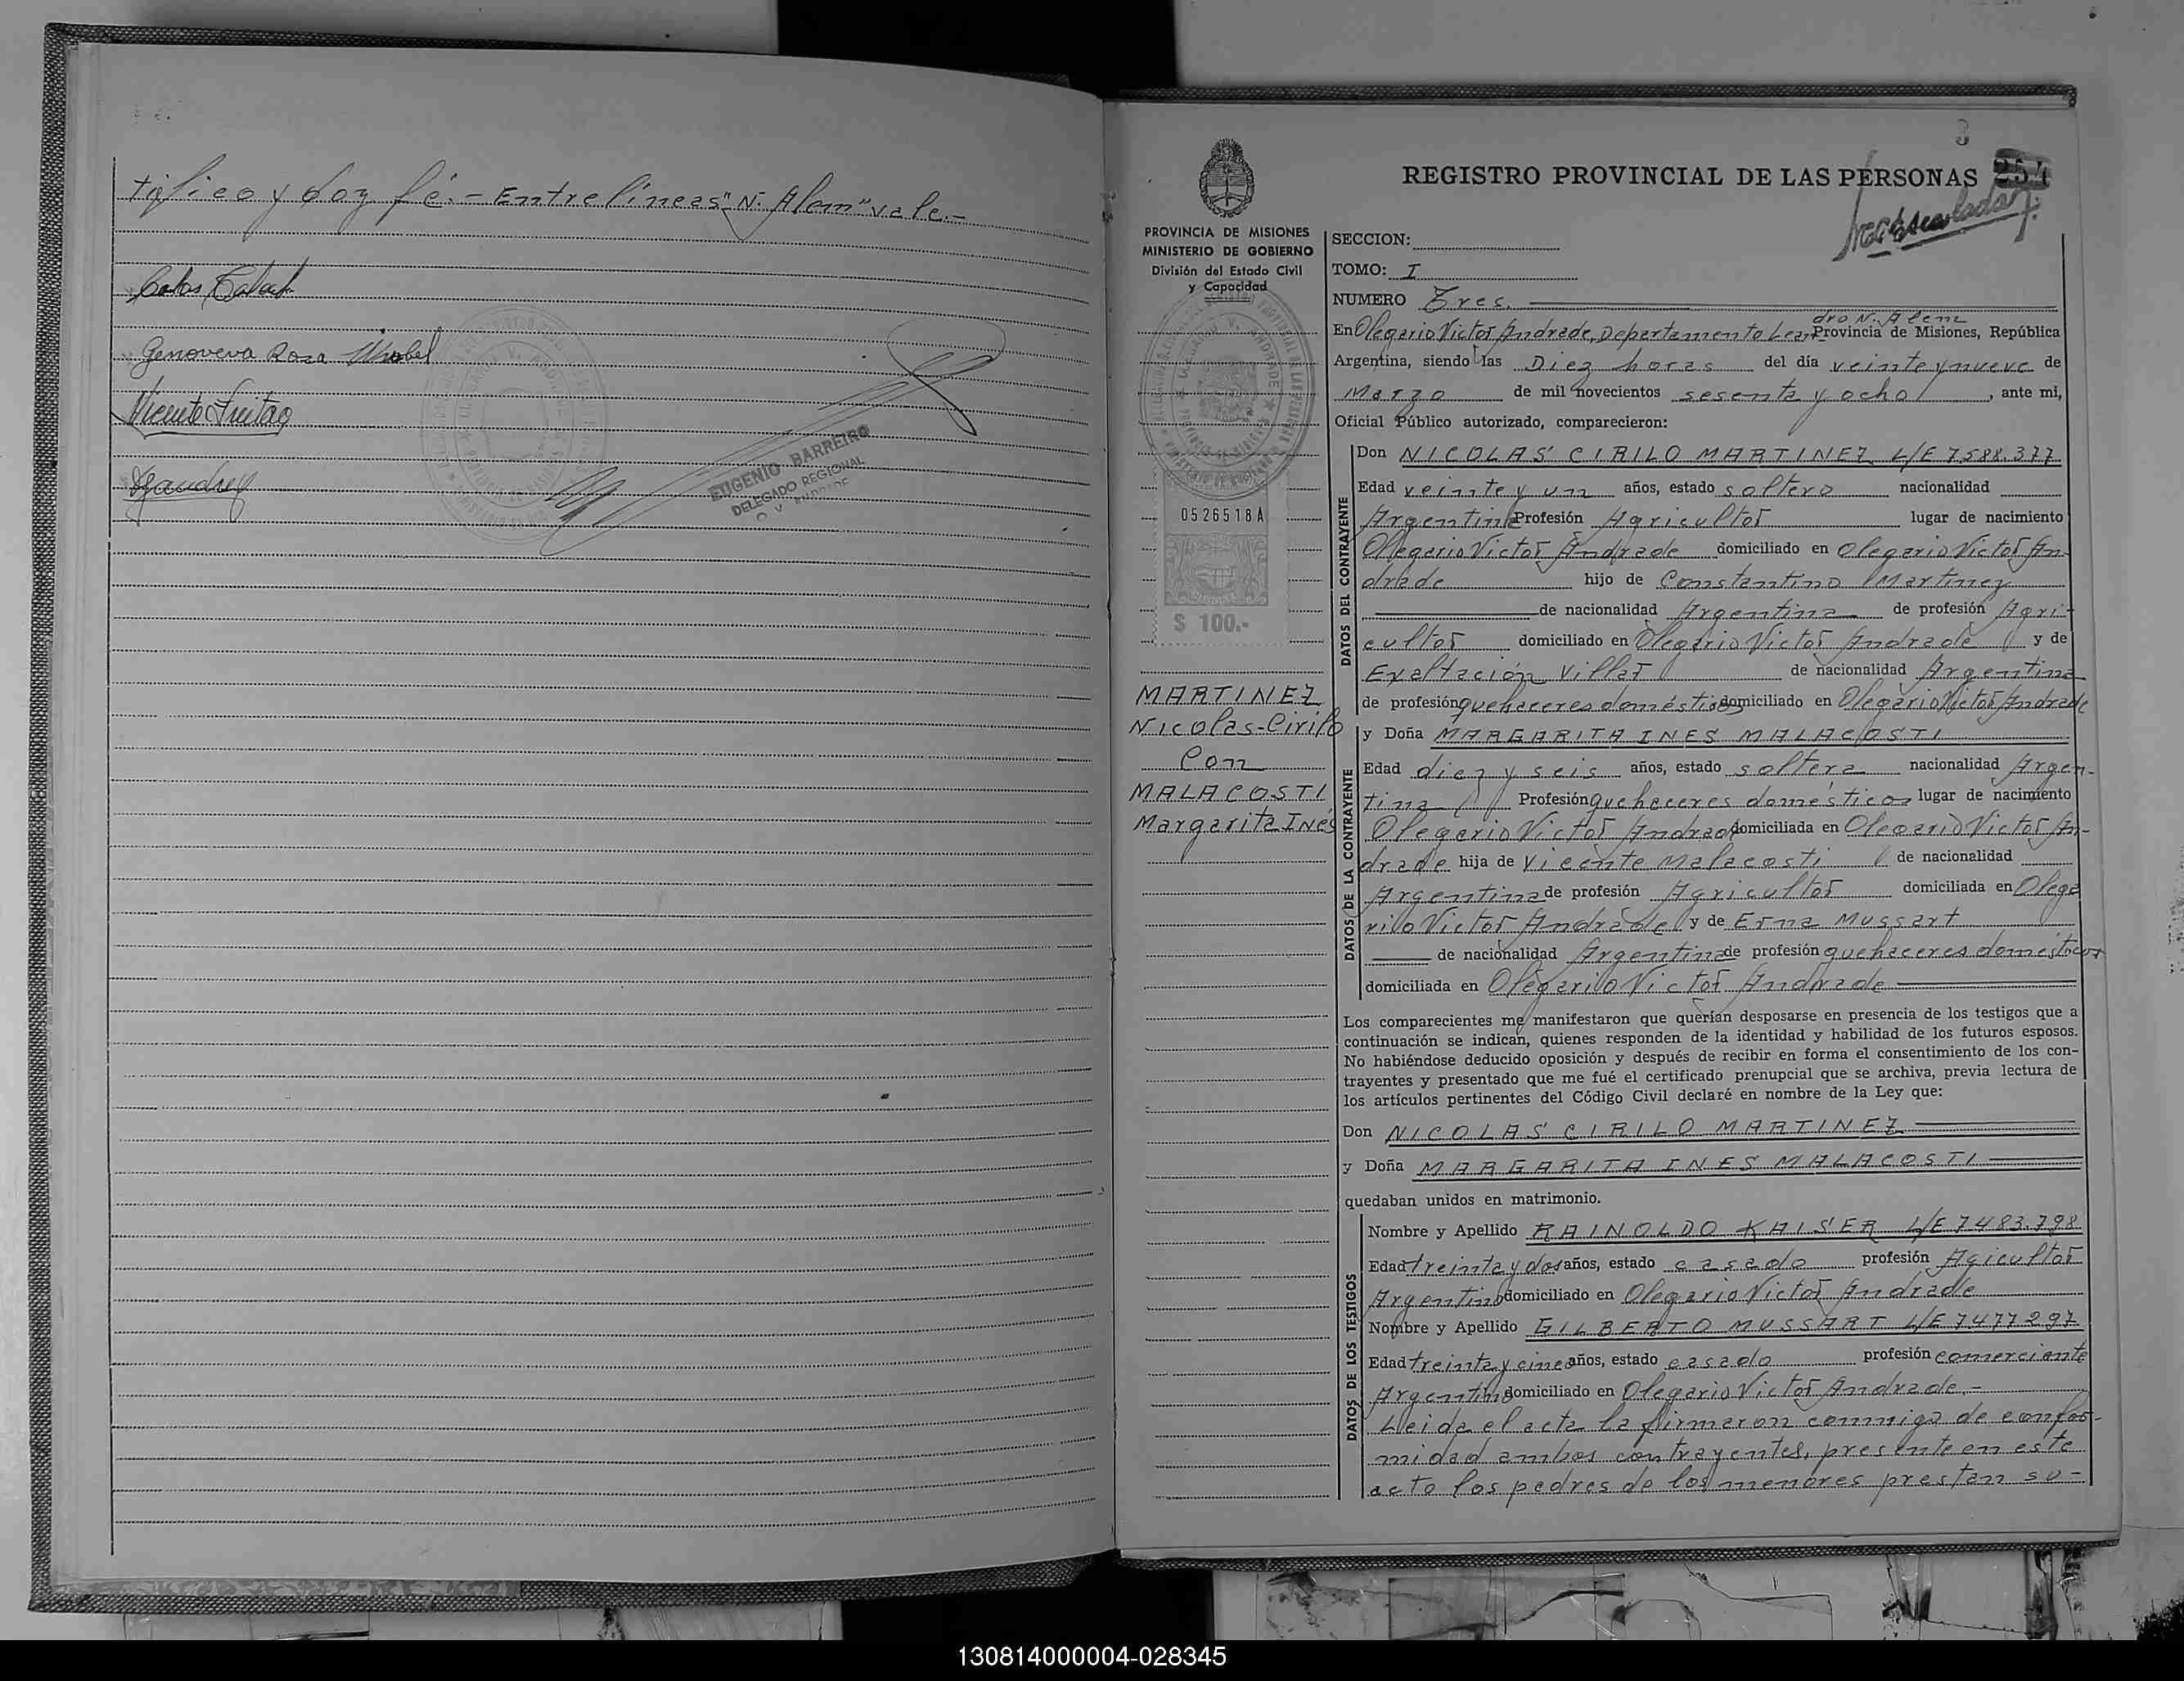 tifico y doy fé.- Entrelíneas "N. Alem" vale.-
Genoveva Rosa
EUGENIO BARREIRO
DELEGADO REGIONAL
3
REGISTRO PROVINCIAL DE LAS PERSONAS 254
PROVINCIA DE MISIONES
MINISTERIO DE GOBIERNO
División del Estado Civil
y Capacidad
0526518A
$ 100.-
MARTINEZ
Nicolás-Cirilo
Con
MALACOSTI
Margarita Inés
SECCION:
TOMO: I
NUMERO Tres.
dro N. Alem
En Olegario Victor Andrade, Departamento Lean- Provincia de Misiones, República
Argentina, siendo las Diez horas del día veinte y nueve de
Marzo de mil novecientos sesenta y ocho, ante mi,
Oficial Público autorizado, comparecieron:
DATOS DEL CONTRAYENTE
Don NICOLAS CIRILO MARTINEZ L/E 7588.377
Edad veinte y un años, estado soltero nacionalidad
Argentina Profesión Agricultor lugar de nacimiento
Olegario Victor Andrade domiciliado en Olegario Victor An-
drade hijo de Constantino Martinez
de nacionalidad Argentina de profesión Agri-
cultor domiciliado en Olegario Victor Andrade y de
Exaltación Villar de nacionalidad Argentina
de profesión quehaceres domésticos domiciliado en Olegario Victor Andrade
DATOS DE LA CONTRAYENTE
y Doña MARGARITA INES MALACOSTI
Edad diez y seis años, estado soltera nacionalidad Argen-
tina Profesión quehaceres domésticos lugar de nacimiento
Olegario Victor Andrade domiciliada en Olegario Victor An-
drade hija de Vicente Malacosti de nacionalidad
Argentina de profesión Agricultor domiciliada en Olega
rio Victor Andrade y de Erna Mussart
de nacionalidad Argentina de profesión quehaceres domésticos
domiciliada en Olegario Victor Andrade
Los comparecientes me manifestaron que querían desposarse en presencia de los testigos que a
continuación se indican, quienes responden de la identidad y habilidad de los futuros esposos.
No habiéndose deducido oposición y después de recibir en forma el consentimiento de los con-
trayentes y presentado que me fué el certificado prenupcial que se archiva, previa lectura de
los artículos pertinentes del Código Civil declaré en nombre de la Ley que:
Don NICOLAS CIRILO MARTINEZ
y Doña MARGARITA INES MALACOSTI
quedaban unidos en matrimonio.
DATOS DE LOS TESTIGOS
Nombre y Apellido RAINOLDO KAISER L/E 7483.798
Edad treinta y dos años, estado casado profesión Agicultor
Argentino domiciliado en Olegario Victor Andrade
Nombre y Apellido GILBERTO MUSSART L/E 7477297
Edad treinta y cinco años, estado casado profesión comerciante
Argentino domiciliado en Olegario Victor Andrade.-
Leida el acta la firmaron conmigo de confor-
midad ambos contrayentes, presente en este
acto los padres de los menores prestan su-
130814000004-028345